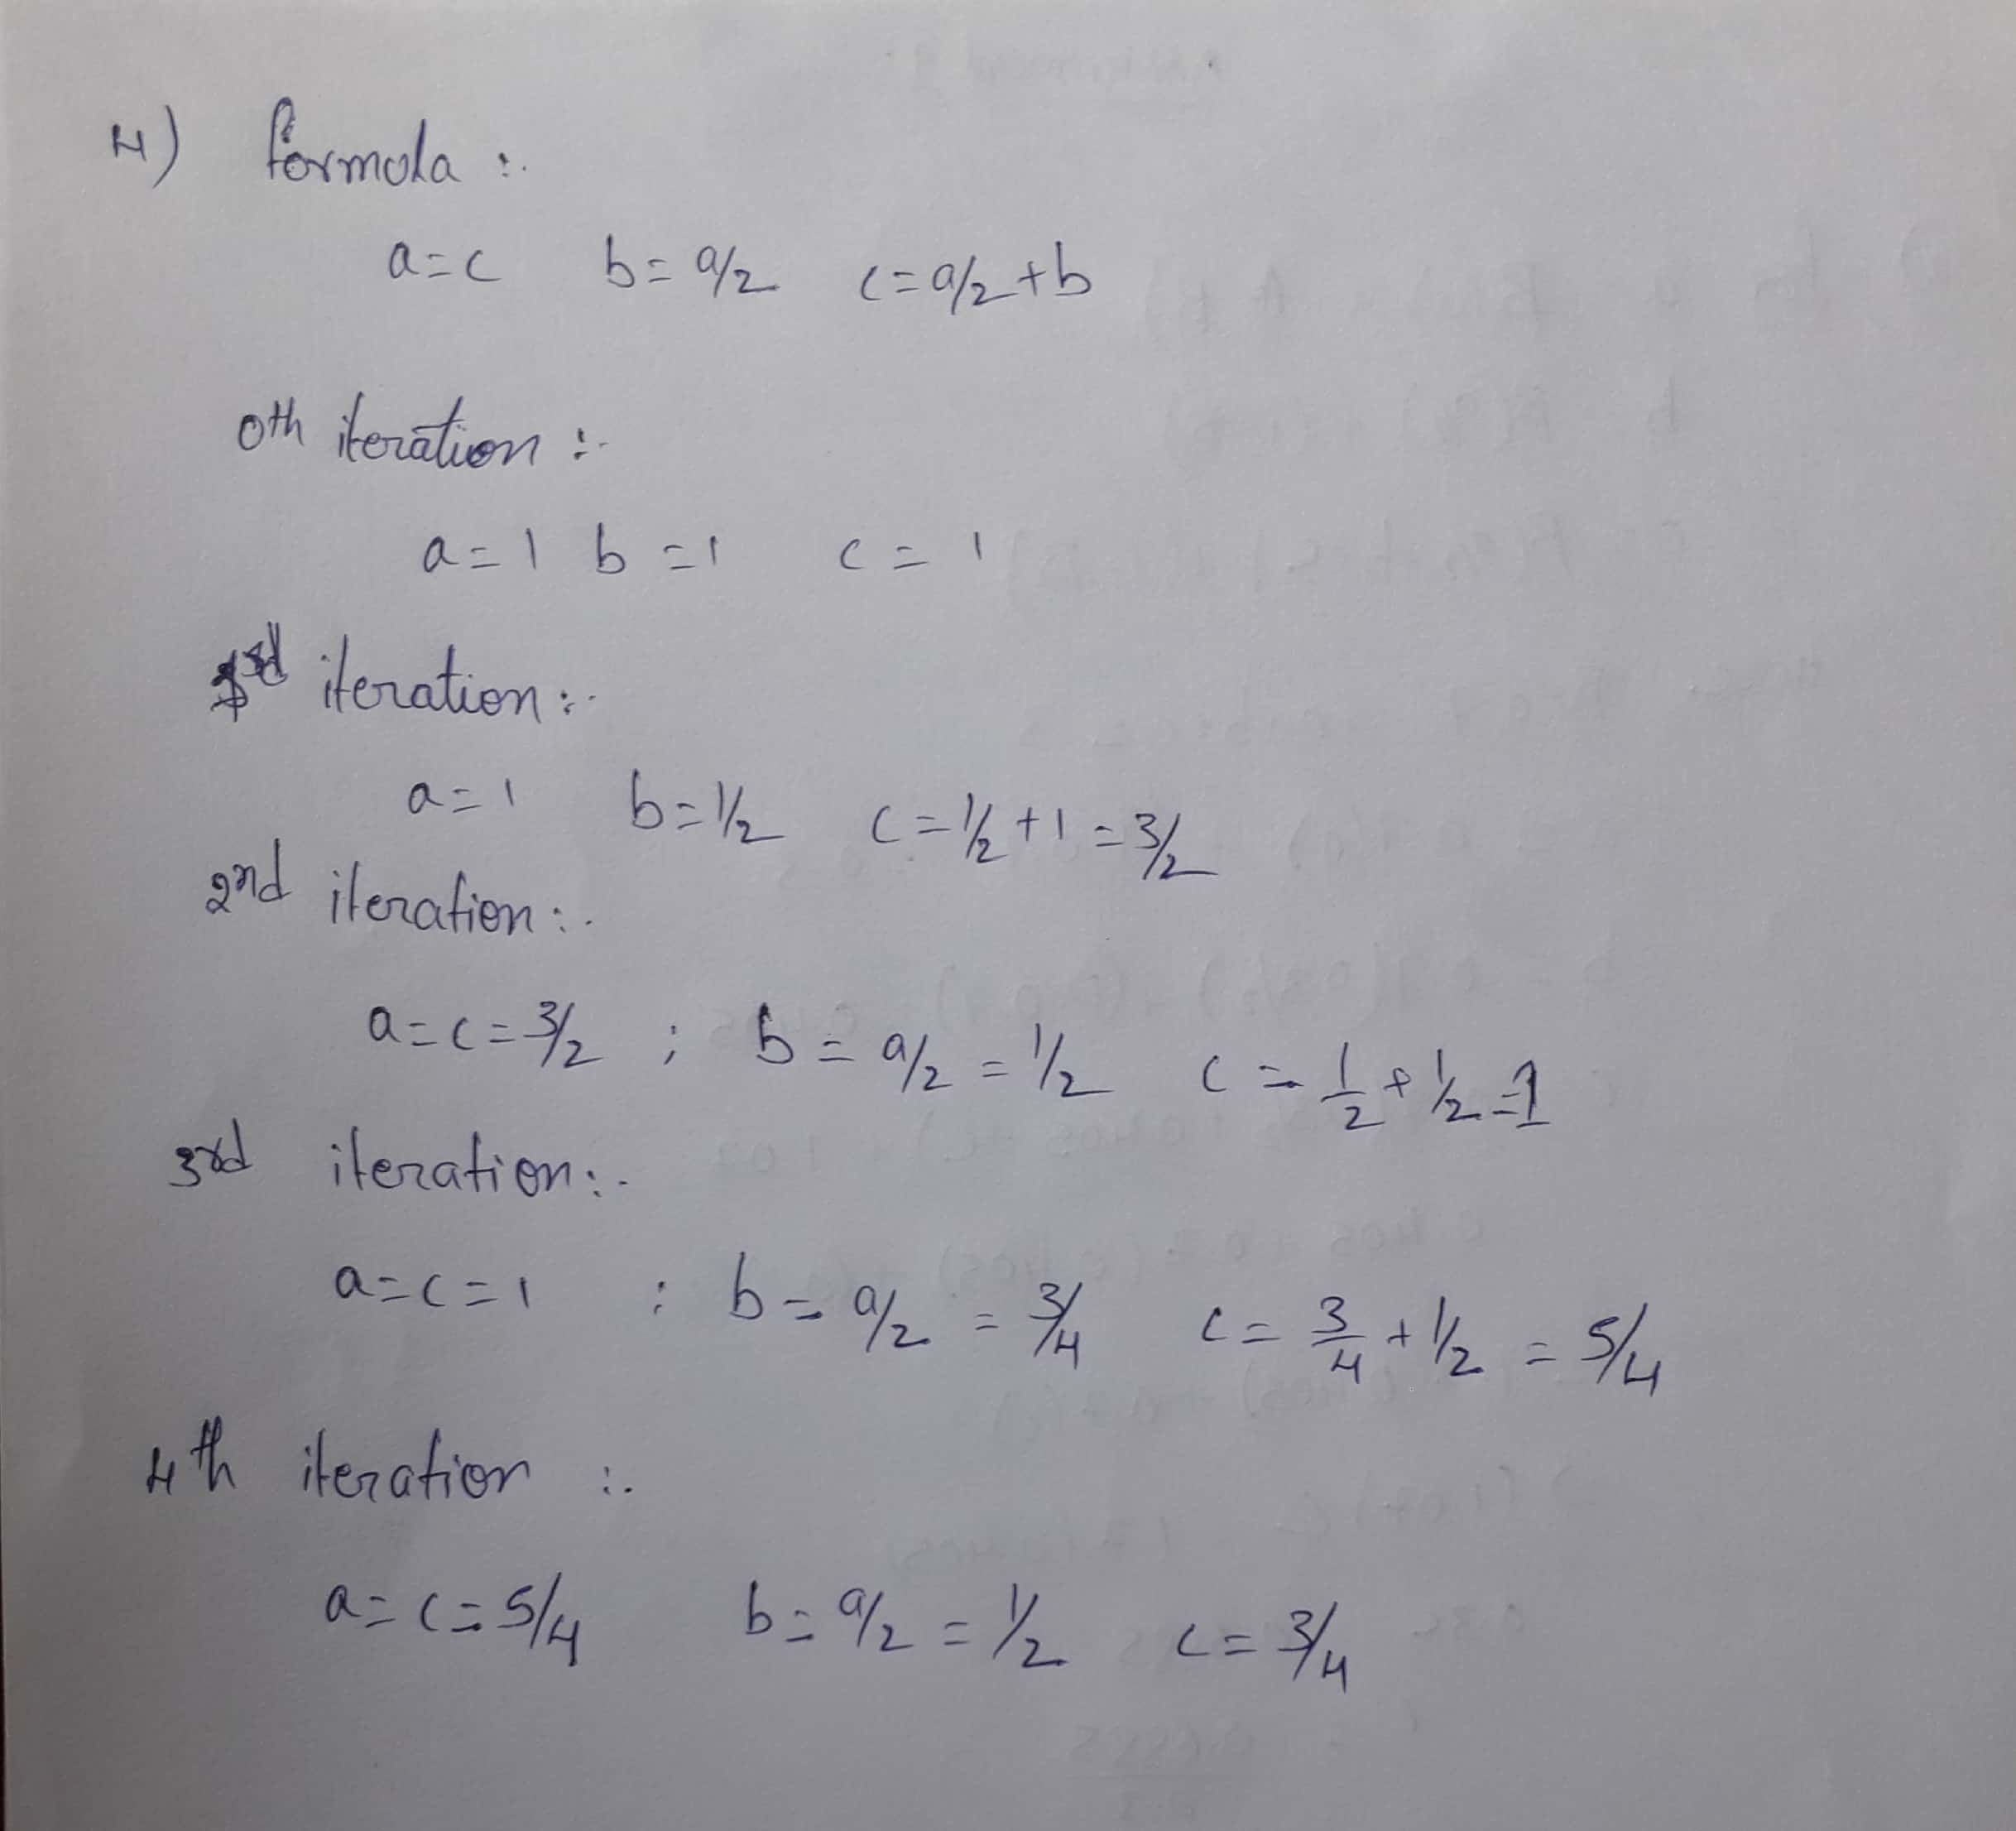 4) formula :-
a=c b=a/2 c=a/2+b
0th iteration :-
a=1 b=1 c=1
iteration :-
a=1 b=1/2 c=1/2+1=3/2
2nd iteration :-
a=c=3/2 ; b=a/2=1/2 c=1/2+1/2=1
3rd iteration :-
a=c=1 : b=a/2=3/4 c=3/4+1/2=5/4
4th iteration :-
a=c=5/4 b=a/2=1/2 c=3/4